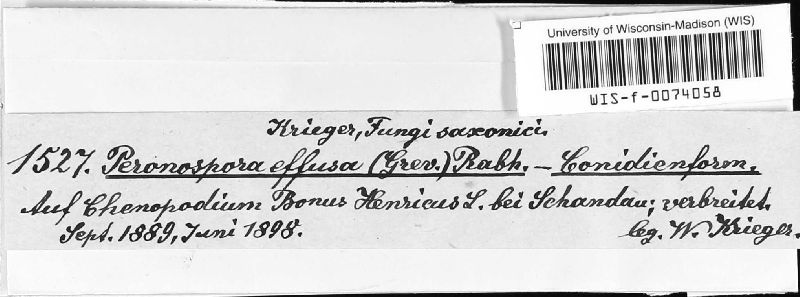 University of Wisconsin-Madison (WIS)
WIS-f-0074058
Krieger, Fungi saxonici.
1527. Peronospora effusa (Grev.) Rabh. – Conidienform.
Auf Chenopodium Bonus Henricus L. bei Schandau; verbreitet.
Sept. 1889, Juni 1898. leg. W. Krieger.